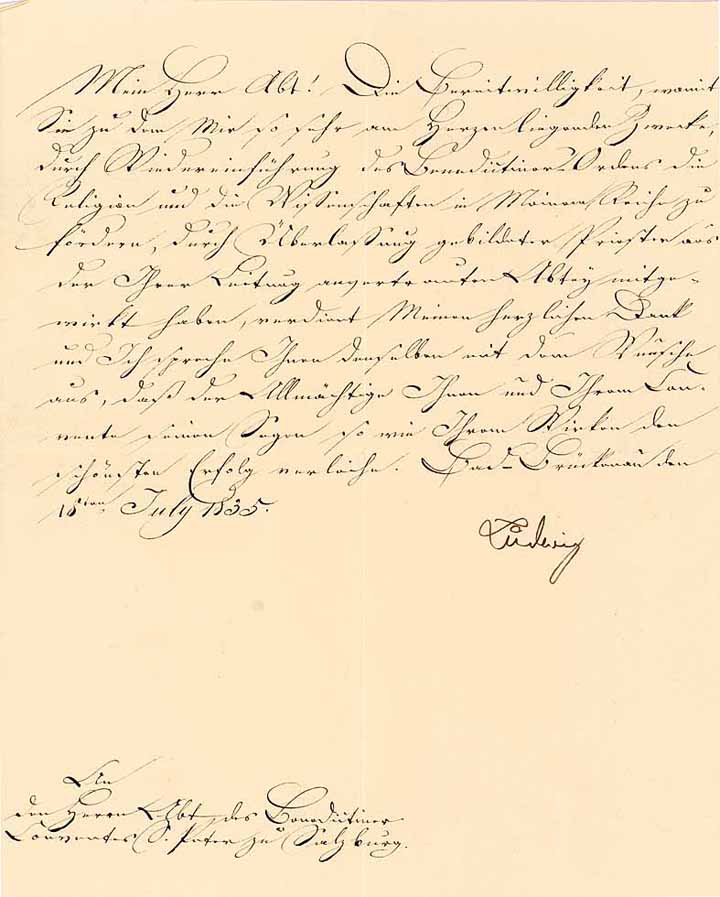 Mein Herr Abt! Die Bereitwilligkeit, womit
Sie zu dem Mir so sehr am Herzen liegenden Zwecke,
durch Wiedereinführung des Benedictiner-Ordens die
Religion und die Wissenschaften in Meinem Reiche zu
fördern, durch Überlassung gebildeter Priester aus
der Ihrer Leitung anvertrauten Abtey mitge-
wirkt haben, verdient Meinen herzlichen Dank
und Ich spreche Ihnen denselben mit dem Wunsche
aus, daß der Allmächtige Ihnen und Ihrem Con-
vente seinen Segen so wie Ihrem Wirken den
schönsten Erfolg verleihe. Bad-Brückenau den
18ten July 1835.
Ludwig
An
den Herrn Abt des Benedictiner
Conventes S. Peter zu Salzburg.